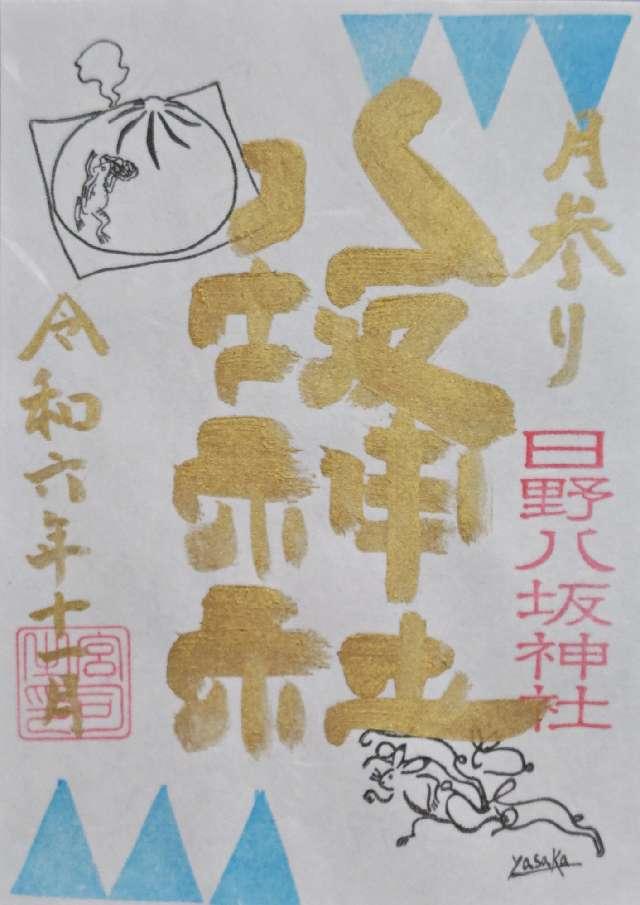 月参り
日野八坂神社
八坂神社
令和六年十一月
宮司之印
yasaka